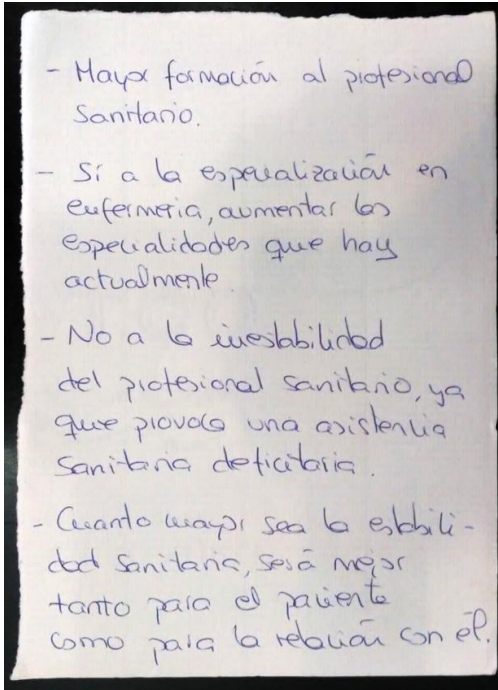 - Mayor formación al profesional
sanitario.
- Sí a la especialización en
enfermeria, aumentar las
especialidades que hay
actualmente.
- No a la inestabilidad
del profesional sanitario, ya
que provoca una asistencia
sanitaria deficitaria.
- Cuanto mayor sea la estabili-
dad sanitaria, será mejor
tanto para el paciente
como para la relación con él.